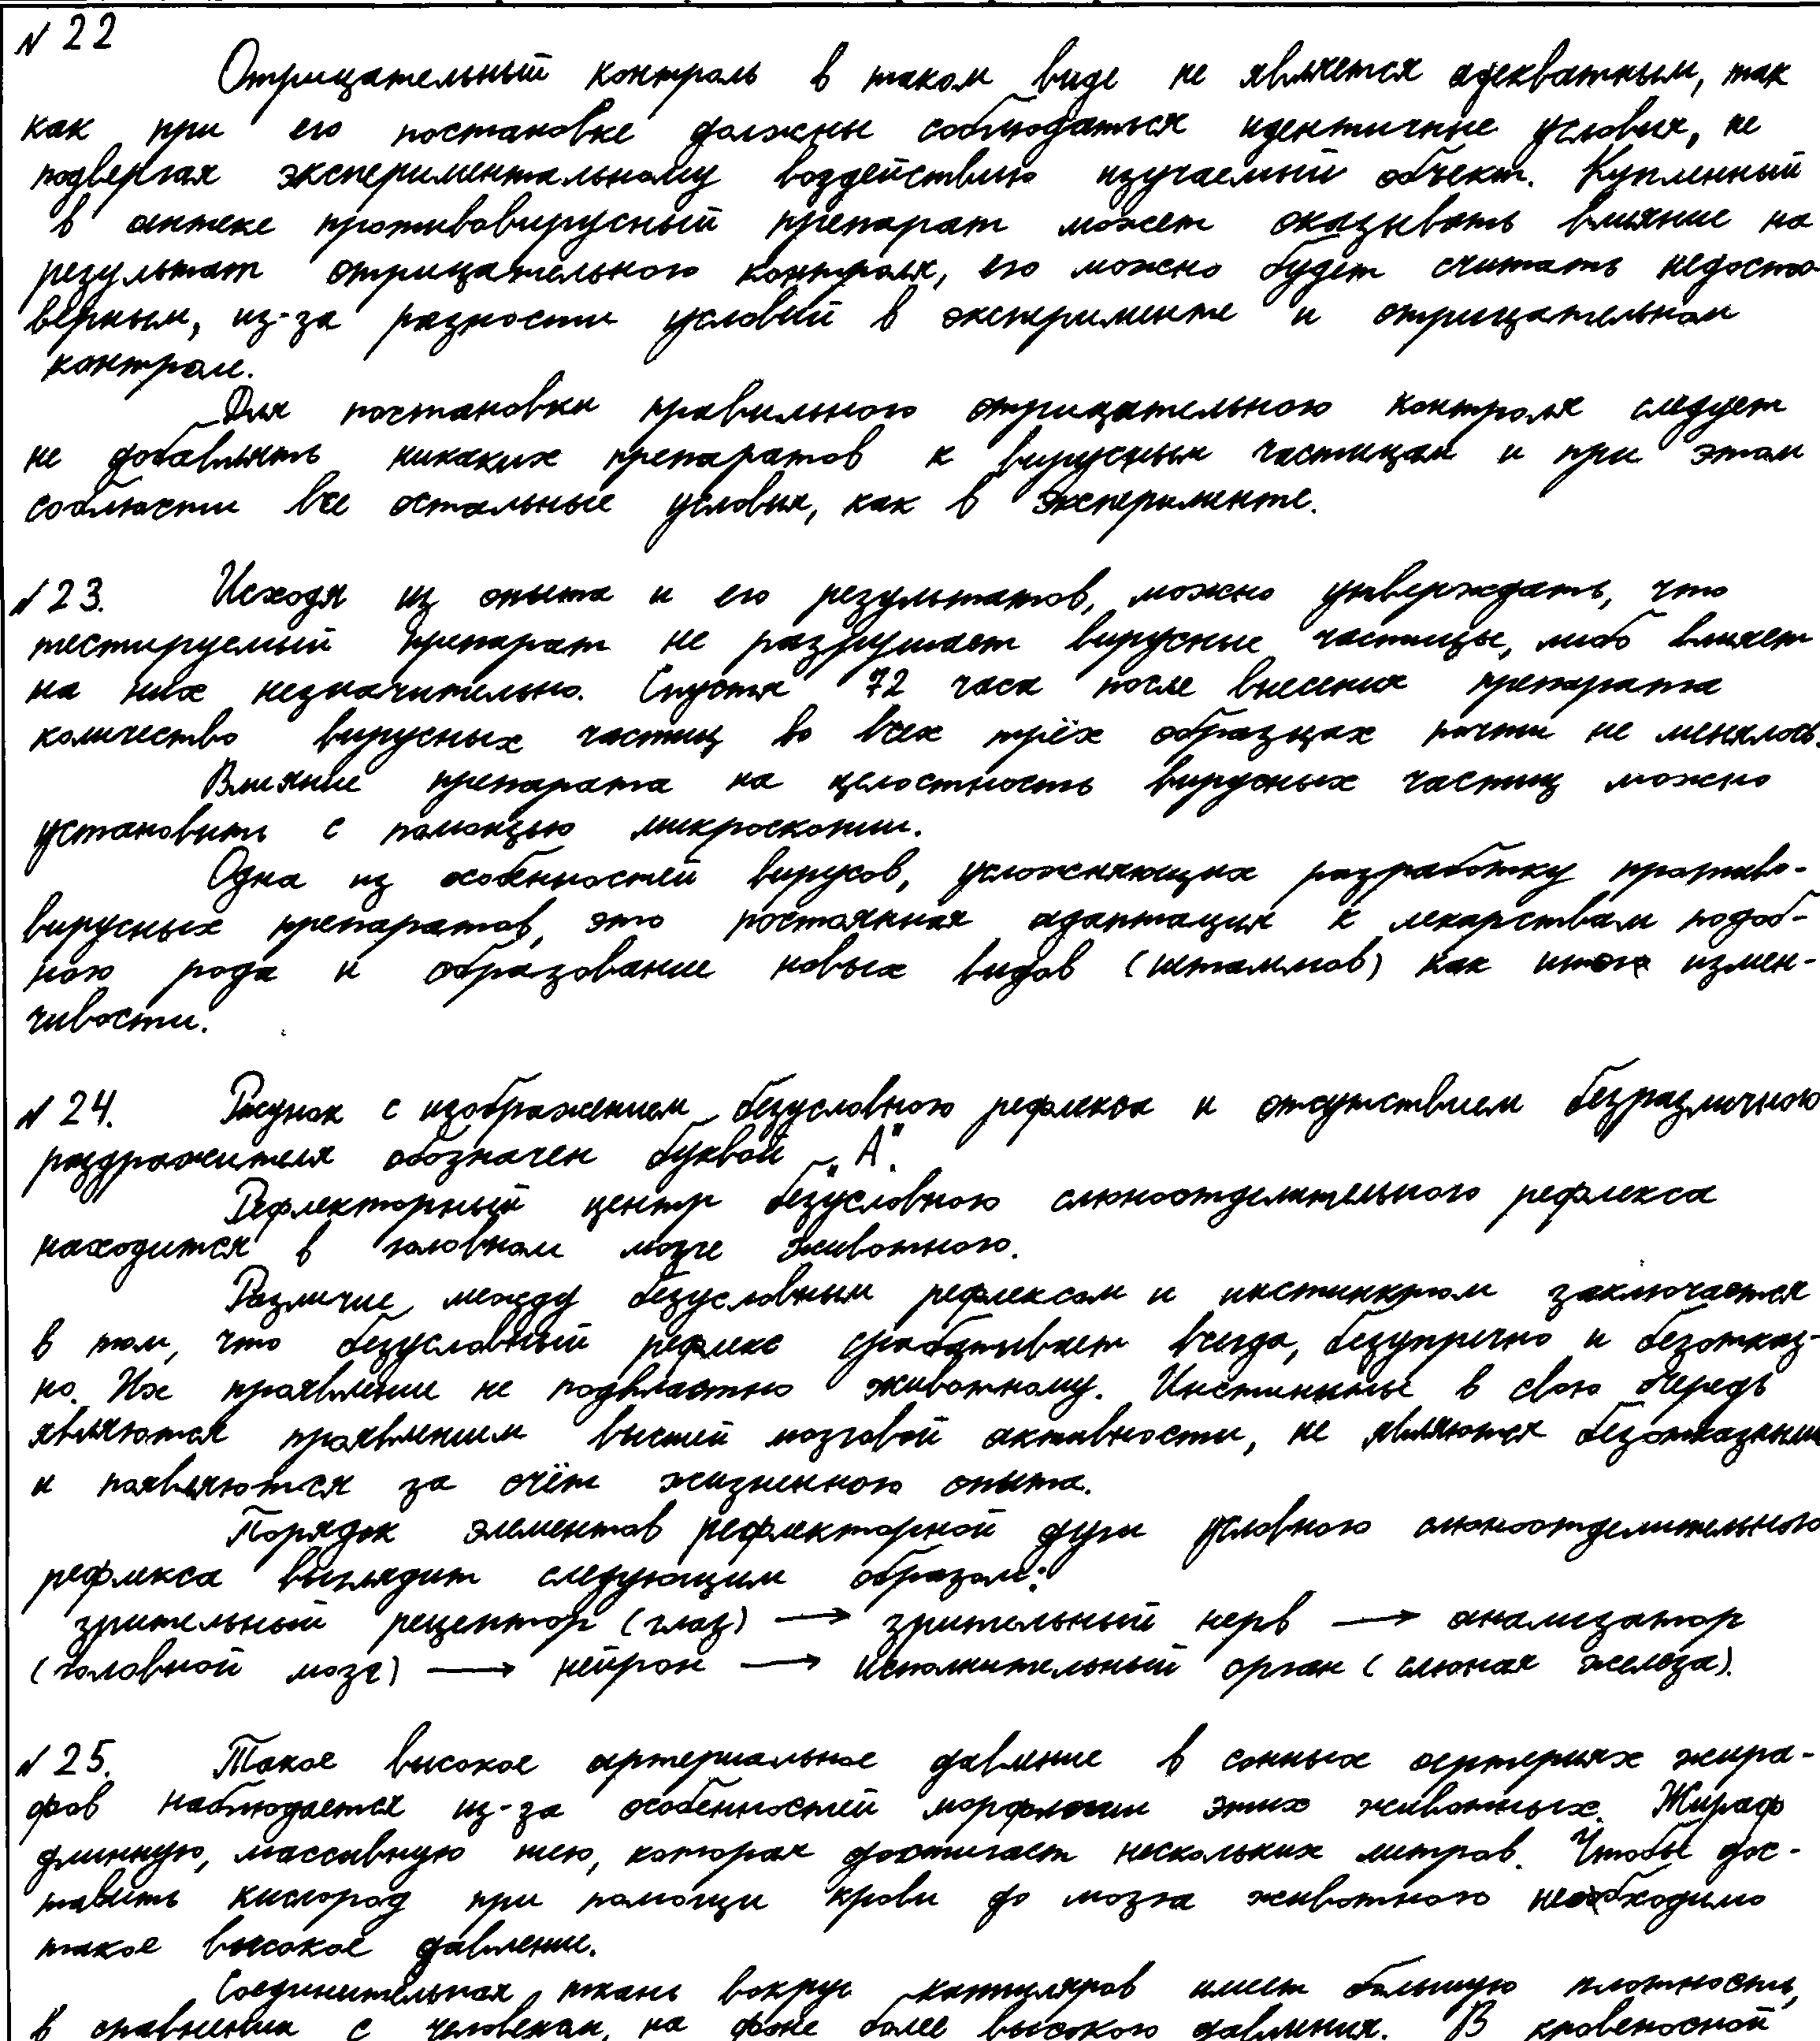 № 22
Отрицательный контроль в таком виде не является адекватным, так
как при его постановке должны соблюдаться идентичные условия, не
подвергая экспериментальному воздействию изучаемый объект. Купленный
в аптеке противовирусный препарат может оказывать влияние на
результат отрицательного контроля, его можно будет считать недосто-
верным, из-за разности условий в эксперименте и отрицательном
контроле.
Для постановки правильного отрицательного контроля следует
не добавлять никаких препаратов к вирусным частицам и при этом
соблюсти все остальные условия, как в эксперименте.
№ 23. Исходя из опыта и его результатов, можно утверждать, что
тестируемый препарат не разрушает вирусные частицы, либо влияет
на них незначительно. Спустя 72 часа после внесения препарата
количество вирусных частиц во всех трёх образцах почти не менялось.
Влияние препарата на целостность вирусных частиц можно
установить с помощью микроскопии.
Одна из особенностей вирусов, усложняющих разработку противо-
вирусных препаратов, это постоянная адаптация к лекарствам подоб-
ного рода и образование новых видов (штаммов) как итог измен-
чивости.
№ 24. Рисунок с изображением безусловного рефлекса и отсутствием безразличного
раздражителя обозначен буквой „А“.
Рефлекторный центр безусловного слюноотделительного рефлекса
находится в головном мозге животного.
Различие между безусловным рефлексом и инстинктом заключается
в том, что безусловный рефлекс срабатывает всегда, безупречно и безотказ-
но. Их проявление не подвластно животному. Инстинкты в свою очередь
являются проявлением высшей мозговой активности, не являются безотказными
и появляются за счёт жизненного опыта.
Порядок элементов рефлекторной дуги условного слюноотделительного
рефлекса выглядит следующим образом:
зрительный рецептор (глаз) → зрительный нерв → анализатор
(головной мозг) → нейрон → исполнительный орган (слюная железа).
№ 25. Такое высокое артериальное давление в сонных артериях жира-
фов наблюдается из-за особенностей морфологии этих животных. Жираф
длинную, массивную шею, которая достигает нескольких метров. Чтобы дос-
тавить кислород при помощи крови до мозга животного необходимо
такое высокое давление.
Соединительная ткань вокруг капилляров имеет большую плотность,
в сравнении с человеком, на фоне более высокого давления. В кровеносной